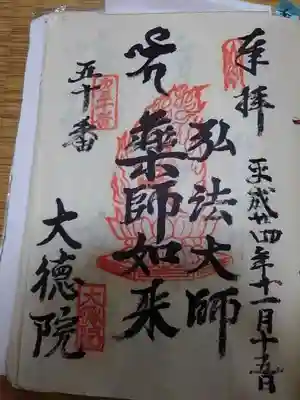 奉拝
平成廿四年十一月十五日
弘法大師
薬師如来
五十番
大徳院